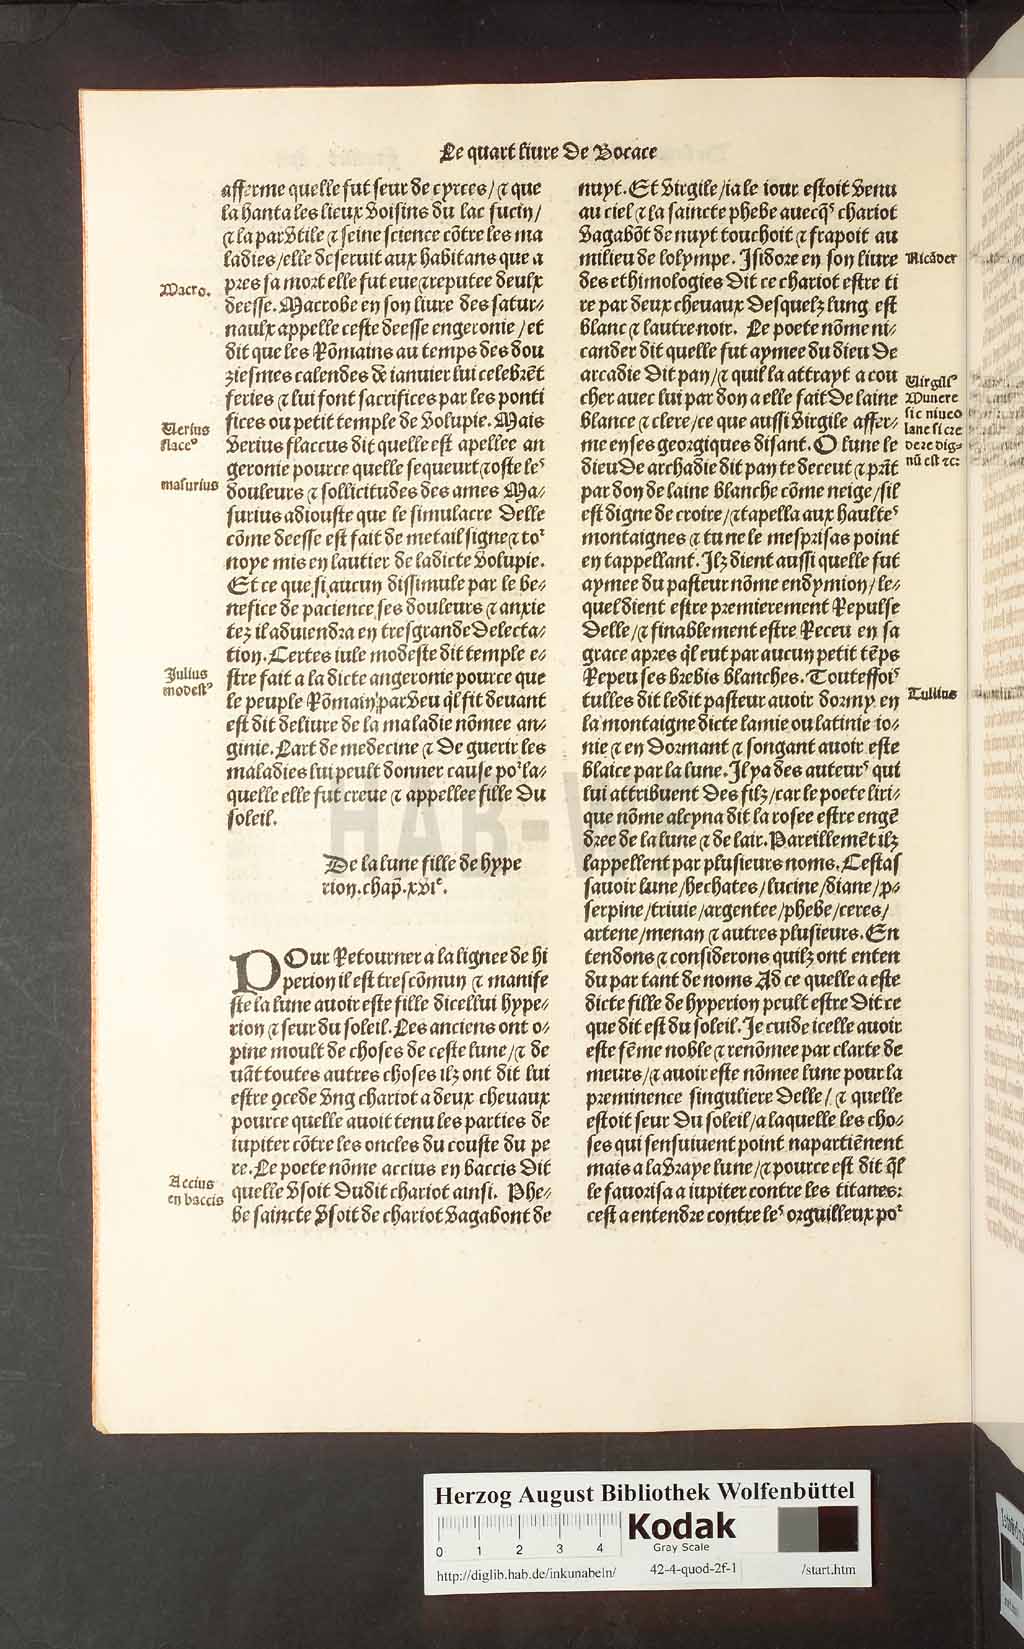 Le quart liure de Bocace
afferme quelle fut seur de cyrces/ ⁊ que
la hanta les lieux voisins du lac fucin/
⁊ la par vtile ⁊ seine science cõtre les ma
ladies/elle deseruit aux habitans que a
pres sa mort elle fut eue ⁊ reputee deulx
deesse. Macrobe en son liure des satur-
naulx appelle ceste deesse engeronie/et
dit que les Rõmains au temps des dou
ziesmes calendes de ianuier lui celebrẽt
feries ⁊ lui font sacrifices par les ponti
fices ou petit temple de Volupie. Mais
verius flaccus dit quelle est apellee an
geronie pource quelle sequeurt ⁊ oste leˢ
douleurs ⁊ sollicitudes des ames Ma-
surius adiouste que le simulacre delle
cõme deesse est fait de metail signe ⁊ toʳ
noye mis en lautier de ladicte volupie.
Et ce que si aucun dissimule par le be-
nefice de pacience ses douleurs ⁊ anxie
tez il aduiendra en tresgrande delecta-
tion. Certes iule modeste dit temple e-
stre fait a la dicte angeronie pource que
le peuple Rõmain par veu q̃l fit deuant
est dit deliure de la maladie nõmee an-
ginie. Lart de medecine ⁊ de guerir les
maladies lui peult donner cause poʳ la-
quelle elle fut creue ⁊ appellee fille du
soleil.
De la lune fille de hype
rion. chap̃. xvıᵉ.
POur Retourner a la lignee de hi
perion il est trescõmun ⁊ manife
ste la lune auoir este fille dicellui hype-
rion ⁊ seur du soleil. Les anciens ont o-
pine moult de choses de ceste lune/⁊ de
uãt toutes autres choses ilz ont dit lui
estre ꝯcede vng chariot a deux cheuaux
pource quelle auoit tenu les parties de
iupiter cõtre les oncles du couste du pe
re. Le poete nõme accius en baccis dit
quelle vsoit dudit chariot ainsi. Phe-
be saincte vsoit de chariot vagabont de
Macro.
Verius
flaceꝰ
masurius
Julius
modestꝰ
Accius
en baccis
nuyt. Et virgile/ia le iour estoit venu
au ciel ⁊ la saincte phebe auecq̃ˢ chariot
vagabõt de nuyt touchoit ⁊ frapoit au
milieu de lolympe. Isidore en son liure
des ethimologies dit ce chariot estre ti
re par deux cheuaux desquelz lung est
blanc ⁊ lautre noir. Le poete nõme ni-
cander dit quelle fut aymee du dieu de
arcadie dit pan/⁊ quil la attrayt a cou
cher auec lui par don a elle fait de laine
blance ⁊ clere/ce que aussi virgile affer-
me en ses georgiques disant. O lune le
dieu de archadie dit pan te deceut ⁊ prãt
par don de laine blanche cõme neige/sil
est digne de croire/⁊ tapella aux haulteˢ
montaignes ⁊ tu ne le mesprisas point
en tappellant. Ilz dient aussi quelle fut
aymee du pasteur nõme endymion/le-
quel dient estre premierement Repulse
delle/⁊ finablement estre Receu en sa
grace apres q̃l eut par aucun petit tẽps
Repeu ses brebis blanches. Touteffoiˢ
tulles dit ledit pasteur auoir dormy en
la montaigne dicte lamie ou latinie io-
nie ⁊ en dormant ⁊ songant auoir este
blaice par la lune. Il ya des auteurˢ qui
lui attribuent des filz/car le poete liri-
que nõme alcyna dit la rosee estre engẽ
dree de la lune ⁊ de lair. Pareillemẽt ilz
lappellent par plusieurs noms. Cestas
sauoir lune/hechates/lucine/diane/p-
serpine/triuie/argentee/phebe/ceres/
artene/menan ⁊ autres plusieurs. En
tendons ⁊ considerons quilz ont enten
du par tant de noms Ad ce quelle a este
dicte fille de hyperion peult estre dit ce
que dit est du soleil. Je cuide icelle auoir
este fẽme noble ⁊ renõmee par clarte de
meurs/⁊ auoir este nõmee lune pour la
preminence singuliere delle/ ⁊ quelle
estoit seur du soleil/a laquelle les cho-
ses qui sensuiuent point napartiẽnent
mais a la vraye lune/⁊ pource est dit q̃l
le fauorisa a iupiter contre les titanes:
cest a entendre contre leˢ orguilleux poʳ
Nicãder
Virgilꝰ
Munere
sic niueo
lane si cre
dere dig-
nũ est ⁊c:
Tullius
Herzog August Bibliothek Wolfenbüttel
0 1 2 3 4
Kodak
Gray Scale
http://diglib.hab.de/inkunabeln/ 42-4-quod-2f-1 /start.htm